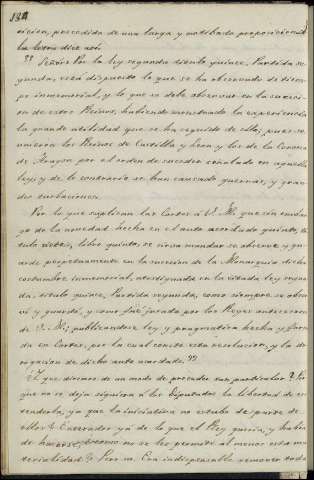 134
cicion, precedida de una larga y motibada proposicion
la letra dice asi:
"Señor: Por la ley segunda titulo quince, Partida se-
gunda, está dispuesto lo que se ha observado de tiem-
po inmemorial, y lo que se debe observar en la sucesi-
on de estos Reinos, habiendo mostrado la experiencia
la grande utilidad que se ha seguido de ello, pues se
unieron los Reinos de Castilla y Leon y los de la Corona
de Aragon por el orden de suceder señalado en aquella
ley; y de lo contrario se han causado guerras, y gran-
des turbaciones.
Por lo que suplican las Cortes á V. M. que sin embar-
go de la novedad hecha en el auto acordado quinto, ti-
tulo siete, libro quinto, se sirva mandar se observe y gu-
arde perpetuamente en la sucesion de la Monarquia dicha
costumbre inmemorial, atestiguada en la citada ley segun-
da, titulo quince, Partida segunda, como siempre se obser-
vó y guardó, y como fué jurada por los Reyes antecesores
de V. M.; publicandose ley y pragmatica hecha y forma-
da en Cortes, por la cual conste esta resolucion, y la de-
rogacion de dicho auto acordado."
¿Y que diremos de un modo de proceder tan particular? Por
que no se deja siquiera á los Diputados la libertad de es-
tenderla, ya que la iniciativa no estubo de parte de
ellos? Enterados ya de lo que el Rey queria, y habia
de hacerse, no se les permite al menos esta ma-
terialidad? Pero no. Era indispensable remover todo